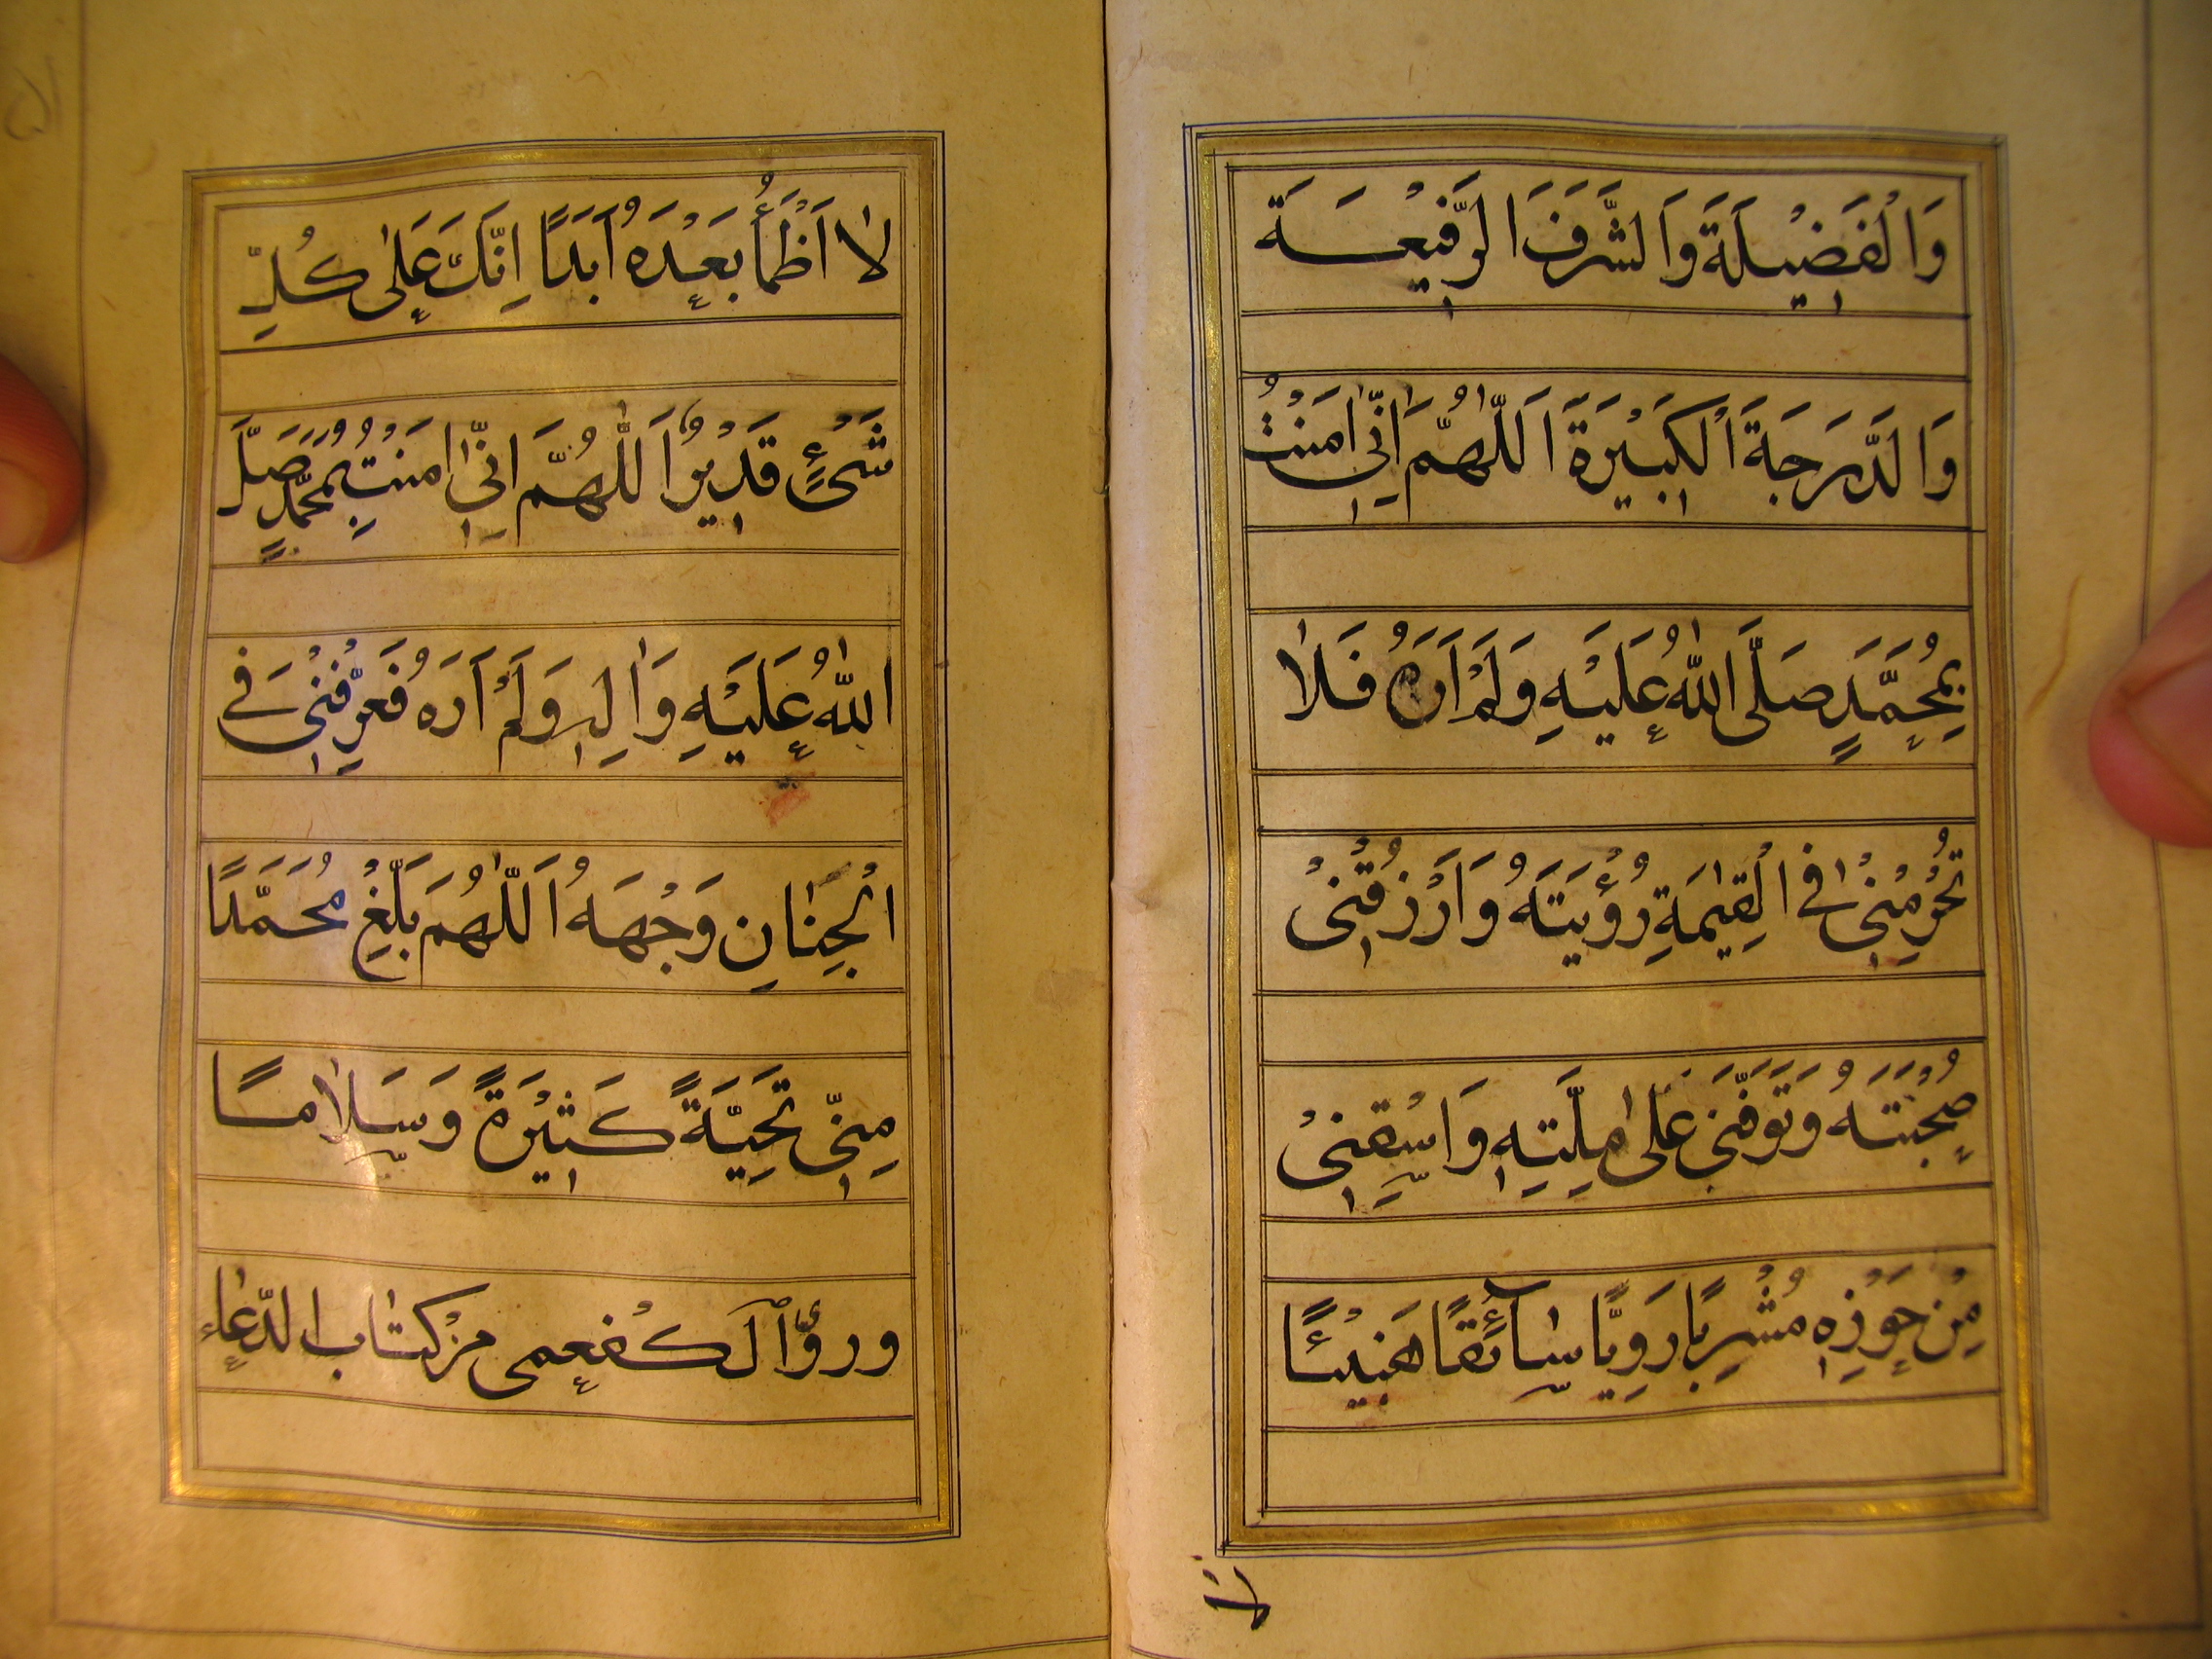 وَالْفَضِيْلَةَ وَالشَّرَفَ الرَّفِيْعَةَ
وَالدَّرَجَةَ الْكَبِيْرَةَ اَللّٰهُمَّ اِنِّىْ اٰمَنْتُ
بِمُحَمَّدٍ صَلَّى اللّٰهُ عَلَيْهِ وَلَمْ اَرَهُ فَلَا
تَحْرِمْنِىْ فِى الْقِيٰمَةِ رُؤْيَتَهُ وَارْزُقْنِىْ
صُحْبَتَهُ وَتَوَفَّنِىْ عَلٰى مِلَّتِهِ وَاسْقِنِىْ
مِنْ حَوْضِهِ مَشْرَبًا رَوِيًّا سَآئِغًا هَنِيْئًا
لا
لَا اَظْمَأُ بَعْدَهُ اَبَدًا اِنَّكَ عَلٰى كُلِّ
شَىْءٍ قَدِيْرٌ اَللّٰهُمَّ اِنِّىْ اٰمَنْتُ بِمُحَمَّدٍ صَلَّى
اللّٰهُ عَلَيْهِ وَاٰلِهِ وَلَمْ اَرَهُ فَعَرِّفْنِىْ فِى
الْجِنَانِ وَجْهَهُ اَللّٰهُمَّ بَلِّغْ مُحَمَّدًا
مِنِّىْ تَحِيَّةً كَثِيْرَةً وَسَلَامًا
الكفعمى من كتاب الدعاء